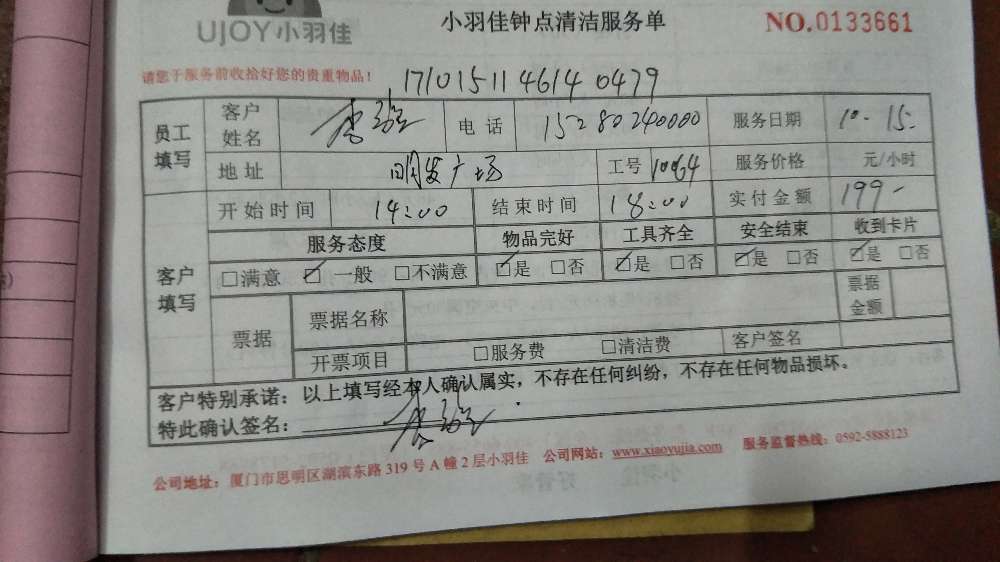 UJOY小羽佳 小羽佳钟点清洁服务单 NO.0133661
请您于服务前收拾好您的贵重物品！ 171015114614 0479
员工填写 客户姓名 李 电话 15280240000 服务日期 10-15
地址 明发广场 工号 1064 服务价格 元/小时
开始时间 14:00 结束时间 18:00 实付金额 199-
客户填写 服务态度 物品完好 工具齐全 安全结束 收到卡片
□满意 ☑一般 □不满意 ☑是 □否 ☑是 □否 ☑是 □否 ☑是 □否
票据 票据名称 票据金额
开票项目 □服务费 □清洁费 客户签名
客户特别承诺：以上填写经本人确认属实，不存在任何纠纷，不存在任何物品损坏。
特此确认签名：
公司地址：厦门市思明区湖滨东路 319 号 A 幢 2 层小羽佳 公司网站：www.xiaoyujia.com 服务监督热线：0592-5888123